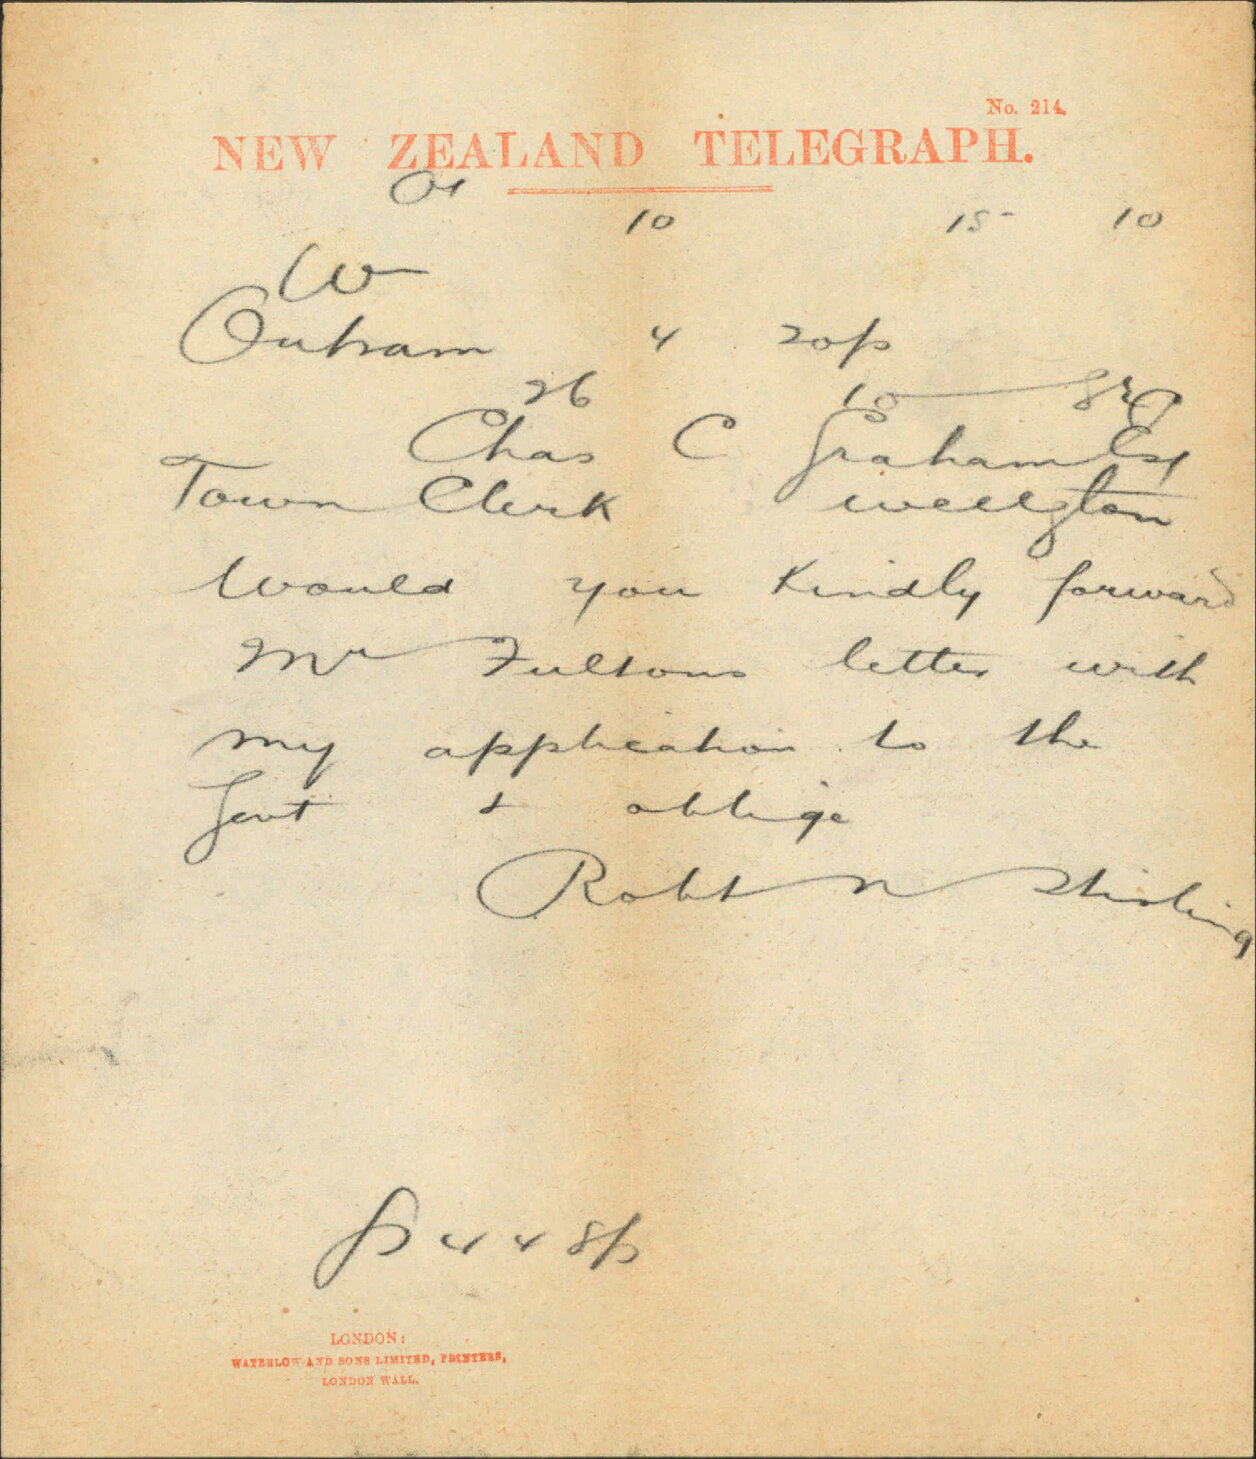 No. 214.
NEW ZEALAND TELEGRAPH.
10 15 10
W
Outram 4 20p
26 10
Chas C Graham Esq
Town Clerk wellgton
Would you Kindly forward
Mr Fultons letter with
my application to the
Govt & oblige
Robt N Stirling
4 4 8p
LONDON:
WATERLOW AND SONS LIMITED, PRINTERS,
LONDON WALL.